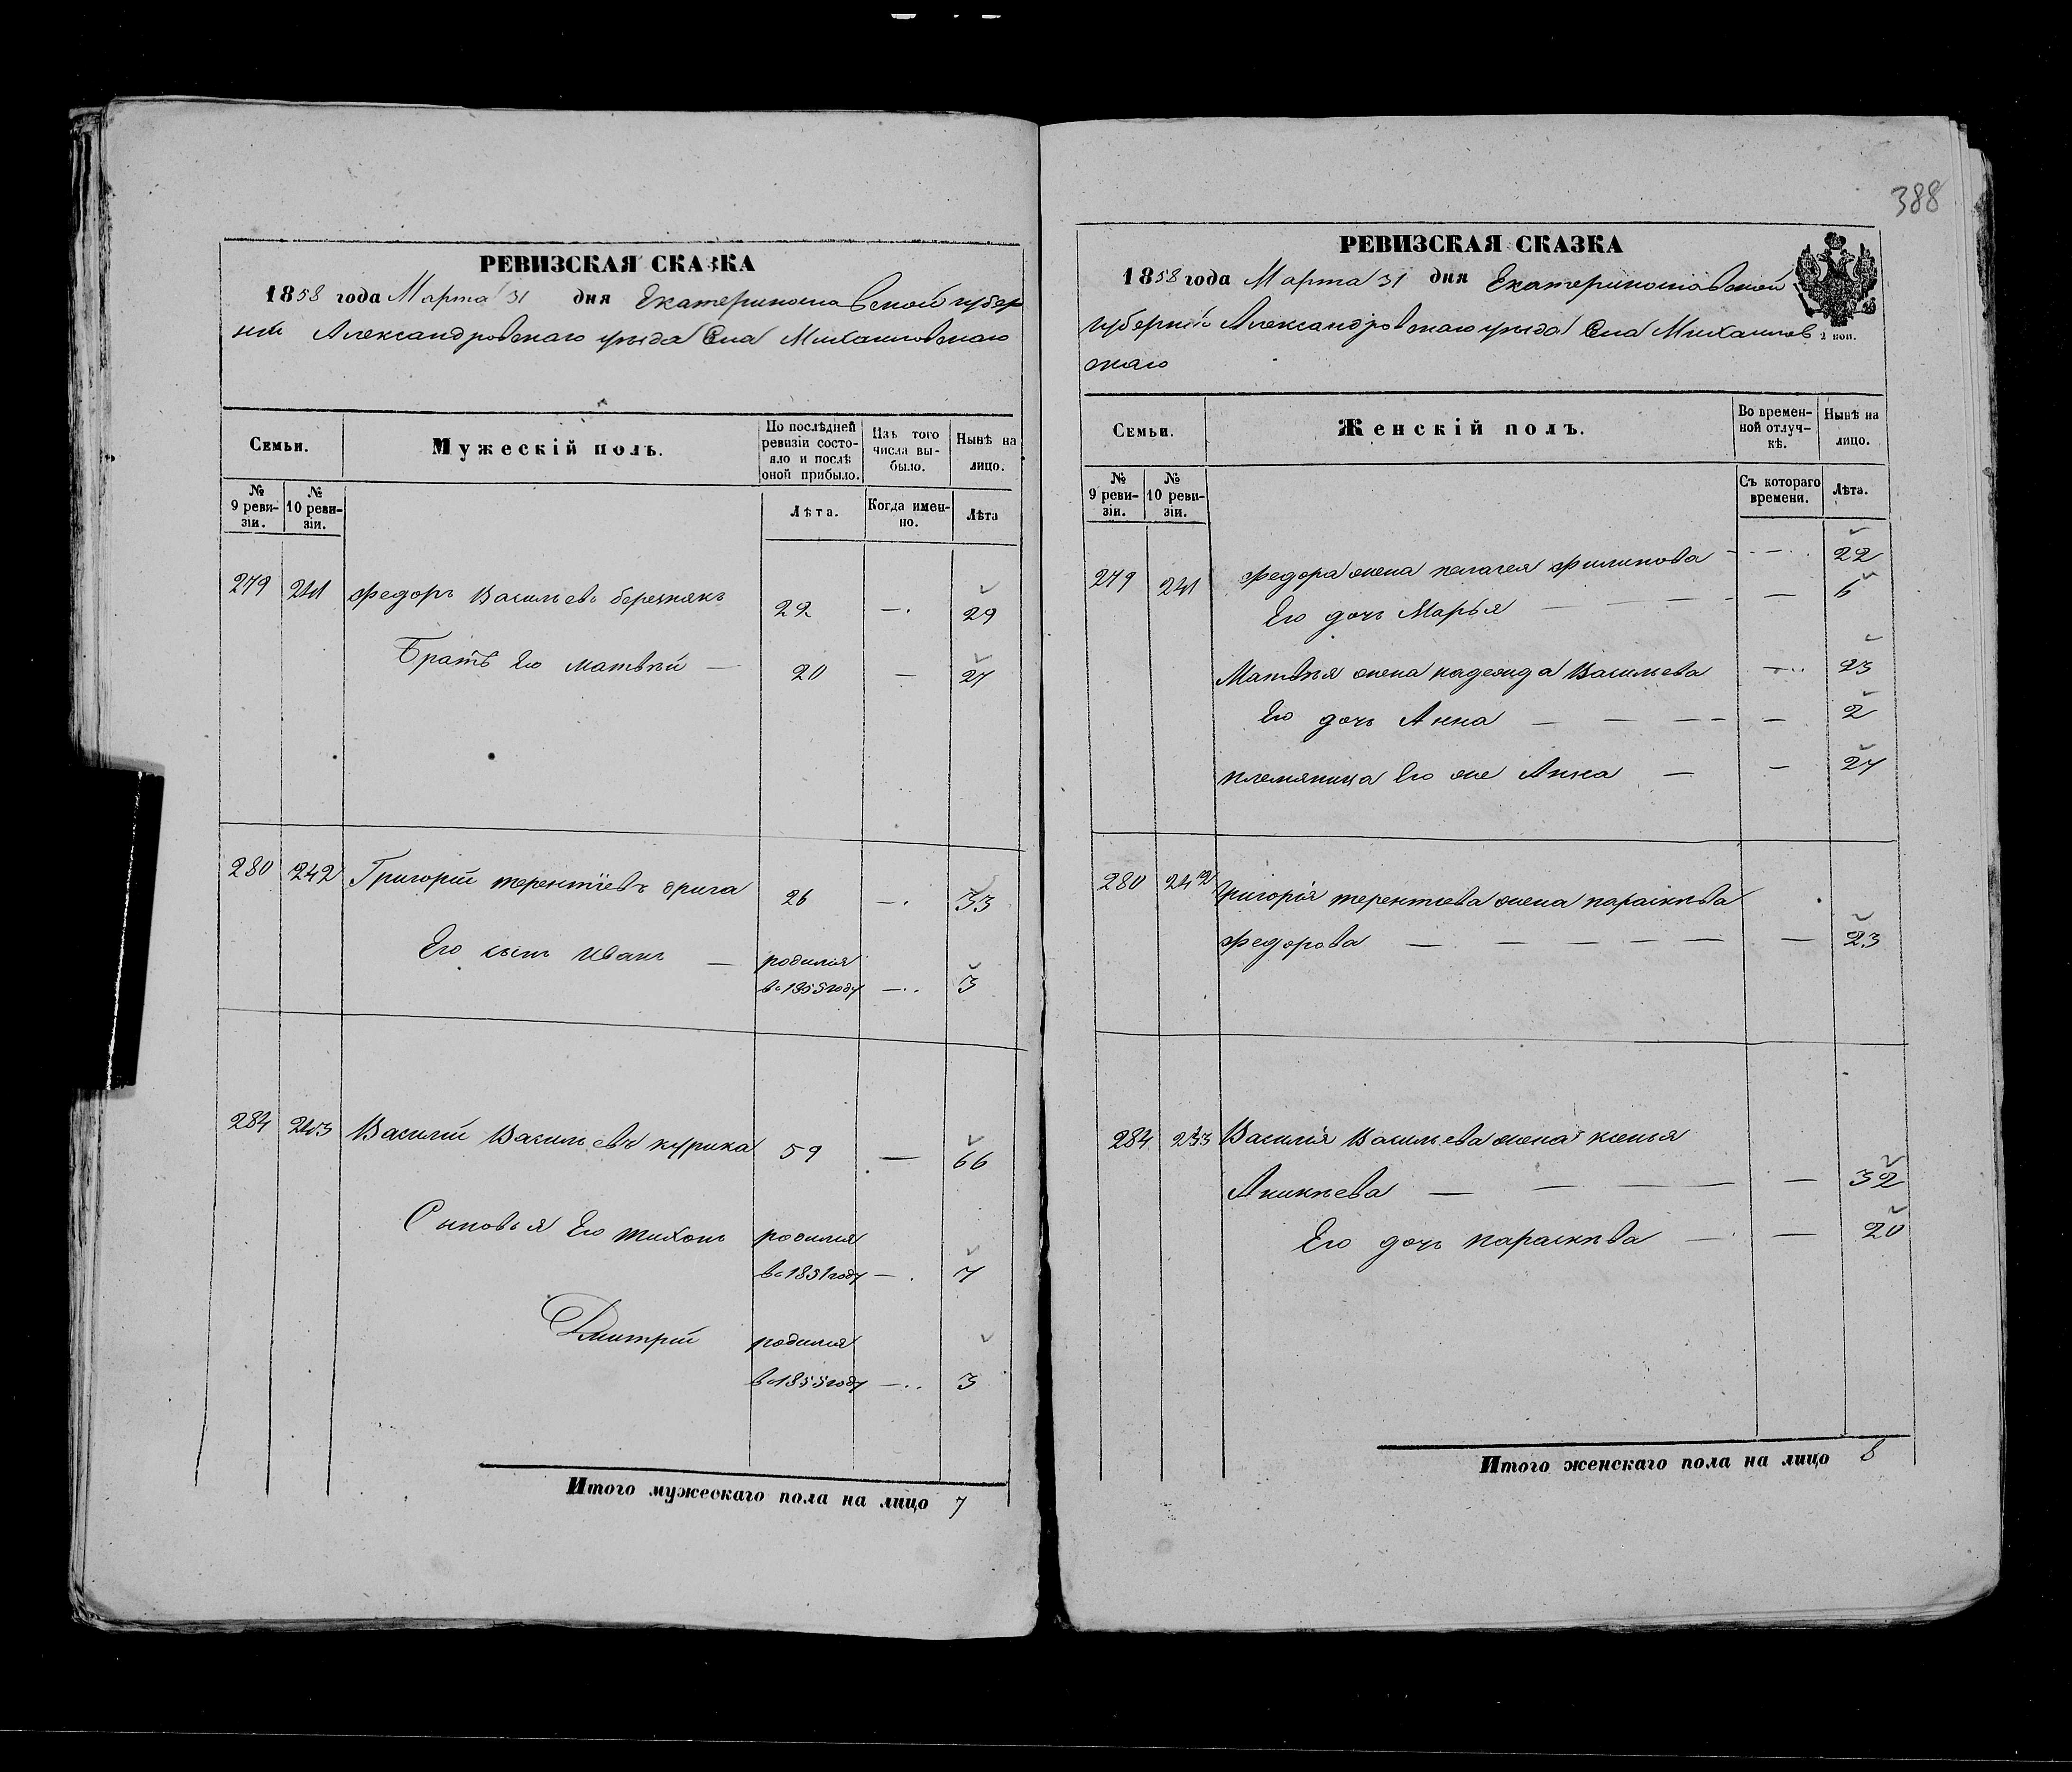 388
РЕВИЗСКАЯ СКАЗКА
1858 года Марта 31 дня Екатеринославской губер
нии Александровскаго уезда Села Михайловскаго
Семьи.
Мужескій полъ.
По послѣдней ревизіи состояло и послѣ оной прибыло.
Изъ того числа выбыло.
Нынѣ на лицо.
№ 9 ревизіи.
№ 10 ревизіи.
Лѣта.
Когда именно.
Лѣта
279 241 Федоръ Васильевъ березнякъ 22 — 29
Братъ Его Матвѣй — 20 — 27
280 242 Григорій терентіевъ дрига 26 — 33
Его сынъ Иванъ — родился
въ 1855 году — 3
284 243 Василій Васильевъ курика 59 — 66
Сыновья Его тихонъ родился
въ 1851 году — 7
Дмитрій родился
въ 1855 году — 3
Итого мужескаго пола на лицо 7
РЕВИЗСКАЯ СКАЗКА
1858 года Марта 31 дня Екатеринославской
губерніи Александровскаго уезда Села Михайлов
скаго
2 коп.
Семьи.
Женскій полъ.
Во временной отлучкѣ.
Нынѣ на лицо.
№ 9 ревизіи.
№ 10 ревизіи.
Съ котораго времени.
Лѣта.
279 241 Федора жена пелагея Филипова — 22
Его дочь Марья — 6
Матвѣя жена надежда Васильева — 23
Его дочь Анна — 2
племяница Его же Анна — 27
280 242 Григорія терентіева жена параскѣва
Федорова — 23
284 233 Василія Васильева жена ксенья
Аникѣева — 32
Его дочь параскѣва — 20
Итого женскаго пола на лицо 8